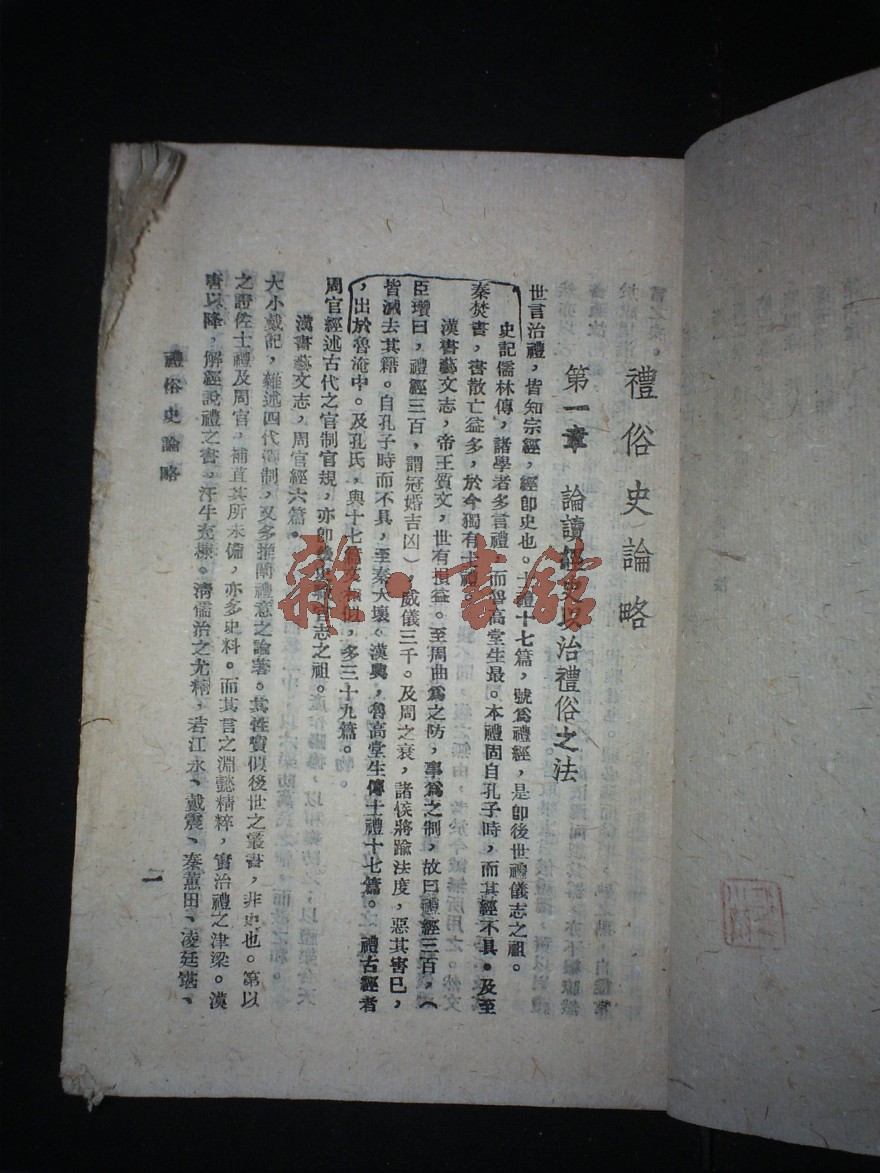 禮俗史論略
第一章　論讀經史以治禮俗之法
世言治禮，皆知宗經，經卽史也。士禮十七篇，號爲禮經，是卽後世禮儀志之祖。
史記儒林傳，諸學者多言禮，而魯高堂生最。本禮固自孔子時，而其經不具。及至
秦焚書，書散亡益多，於今獨有士禮。
漢書藝文志，帝王質文，世有損益。至周曲爲之防，事爲之制，故曰禮經三百，（
臣瓚曰，禮經三百，謂冠婚吉凶），威儀三千。及周之衰，諸侯將踰法度，惡其害己，
皆滅去其籍。自孔子時而不具，至秦大壞。漢興，魯高堂生傳士禮十七篇。禮古經者
，出於魯淹中。及孔氏，與十七篇文相似，多三十九篇。
周官經述古代之官制官規，亦卽後史職官志之祖。
漢書藝文志，周官經六篇。
大小戴記，雜述四代制，又多推闡禮意之論著。其性質似後世之叢書，非史也。第以
之證佐士禮及周官，補苴其所未備，亦多史料。而其言之淵懿精粹，實治禮之津梁。漢
唐以降，解經說禮之書，汗牛充棟。淸儒治之尤精，若江永、戴震、秦蕙田、凌廷堪、
禮俗史論略
一
雜·書館